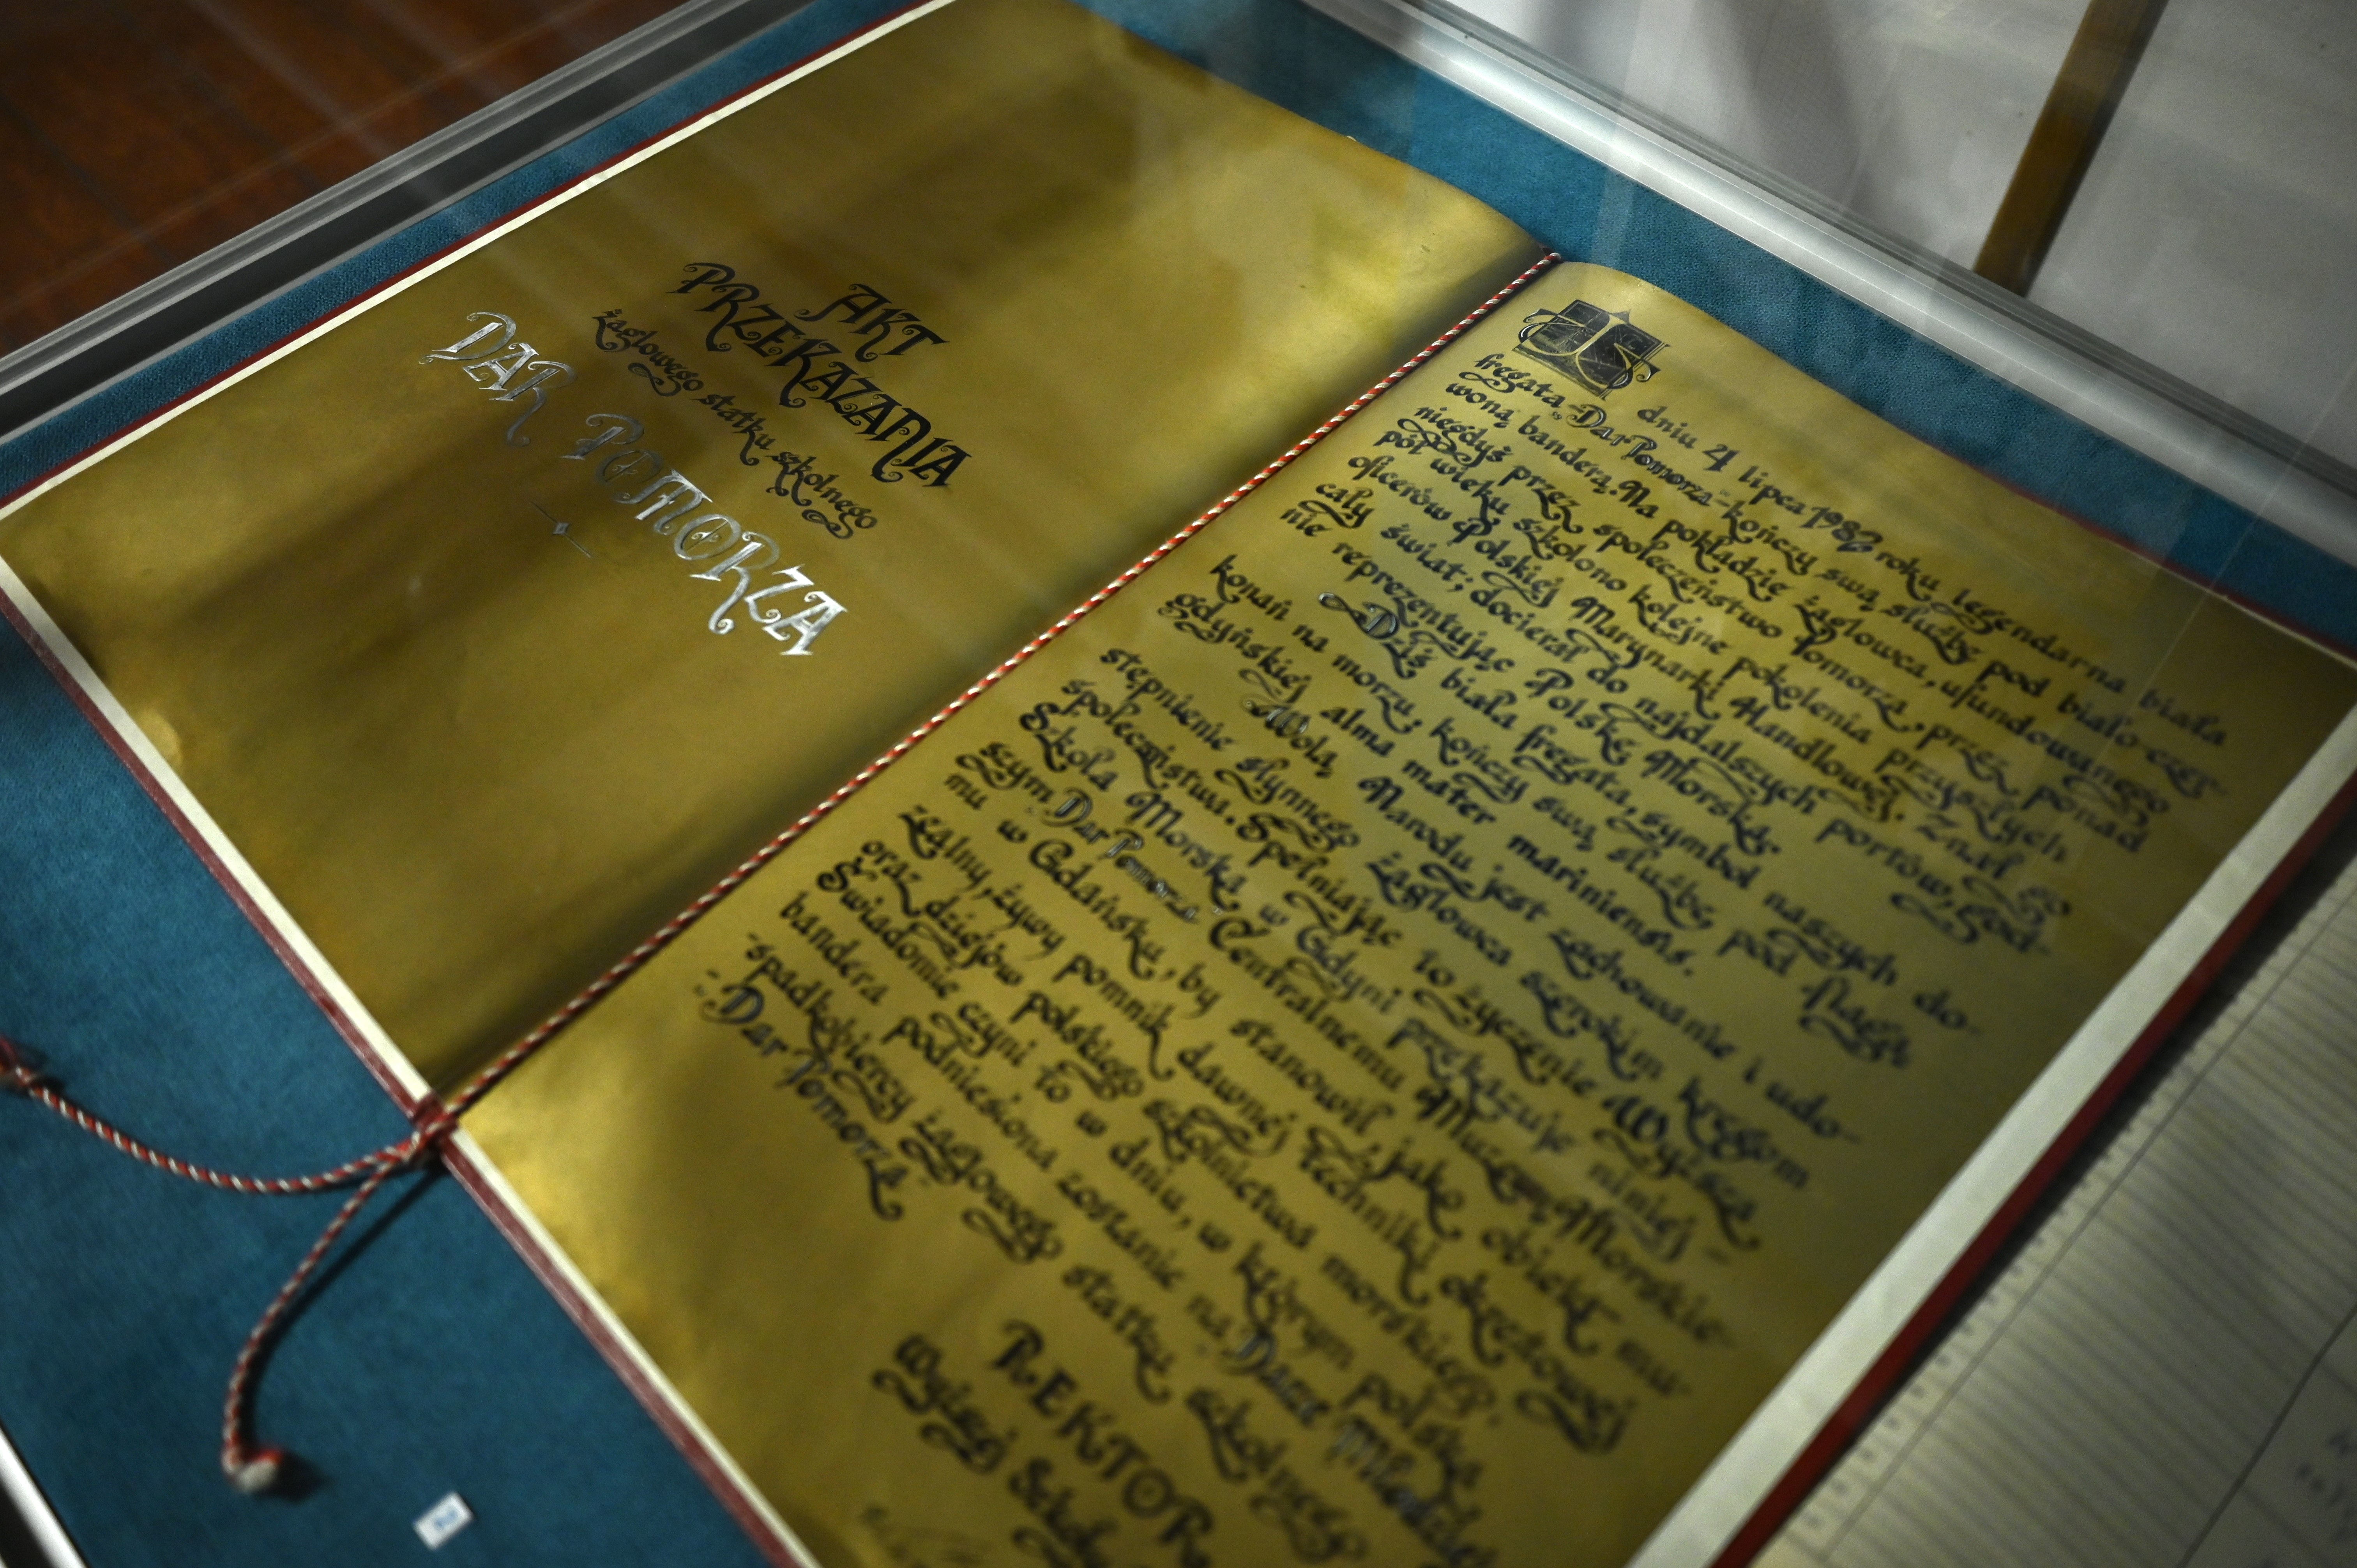 AKT
PRZEKAZANIA
żaglowego statku szkolnego
DAR POMORZA
W
dniu 4 lipca 1982 roku legendarna biała
fregata „Dar Pomorza” kończy swą służbę pod biało-czer-
woną banderą. Na pokładzie żaglowca, ufundowanego
niegdyś przez społeczeństwo Pomorza, przez ponad
pół wieku szkolono kolejne pokolenia przyszłych
oficerów Polskiej Marynarki Handlowej. Znał go
cały świat; docierał do najdalszych portów, god-
nie reprezentując Polskę Morską.
Dziś biała fregata, symbol naszych do-
konań na morzu, kończy swą służbę pod flagą
gdyńskiej alma mater mariniensis.
Wolą Narodu jest zachowanie i udo-
stępnienie słynnego żaglowca szerokim kręgom
społeczeństwa. Spełniając to życzenie Wyższa
Szkoła Morska w Gdyni przekazuje niniej-
szym „Dar Pomorza” Centralnemu Muzeum Morskie-
mu w Gdańsku, by stanowił, jako obiekt mu-
zealny, żywy pomnik dawnej techniki okrętowej
oraz dziejów polskiego szkolnictwa morskiego.
Świadomie czyni to w dniu, w którym polska
bandera podniesiona zostanie na „Darze Młodzieży”
- spadkobiercy żaglowego statku szkolnego
- „Dar Pomorza”
REKTOR
Wyższej Szkoły